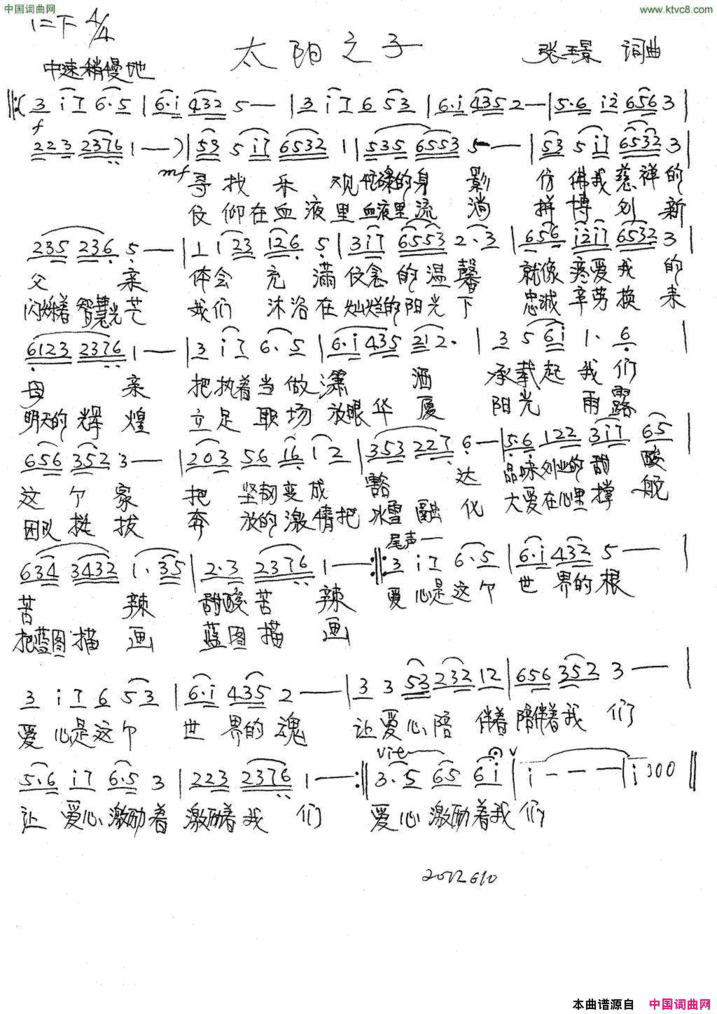 中国词曲网
www.ktvc8.com
1=F 4/4
太阳之子
张璟 词曲
中速稍慢地
3 i 7 6·5 | 6·i 432 5 — | 3 i 7 6 53 | 6·i 435 2 — | 5·6 i2 656 3 |
f
223 2376 1 — ) | 53 5 i7 6532 1 | 535 6553 5 — | 53 5 i7 6532 3 |
mf
寻找 乐 观忙碌的身 影 仿佛我慈祥的
仅仰在血液里血液里流 淌 拼博创新
235 236 5 — | 1 1 23 126 5 | 3i7 6553 2·3 | 656 i2i7 6532 3 |
父 亲 体会 充 满仅念的温馨 就像疼爱我 的
闪烁着智慧光芒 我们 沐浴在灿烂的阳光下 忠诚辛劳换来
6123 2376 1 — | 3 i 7 6·5 | 6·i 435 212· | 3 5 6i 1· 6 |
母 亲 把执着当做潇 洒 承载起我们
明天的辉煌 立足职场放眼华厦 阳光 雨露
656 352 3 — | 203 56 16 12 | 353 227 6 — | 5·6 122 3i7 65 |
这个家 把 坚韧变成 豁 达 品味创业的甜 酸
团队挺拔 奔 放的激情把冰雪融化 大爱在心里撑 舵
尾声—
634 3432 1·35 | 2·3 2376 1 — :‖ 3 i 7 6·5 | 6·i 432 5 — |
苦 辣 甜酸苦 辣 爱心是这个 世界的根
把蓝图描画 蓝图描画
3 i 7 6 53 | 6·i 435 2 — | 3 3 53 232 12 | 656 352 3 — |
爱心是这个 世界的魂 让爱心陪 伴着陪伴着我们
5·6 i7 6·5 3 | 223 2376 1 — :‖ 3·5 65 6i | i — — — | i 3 0 0 ‖
让 爱心激励着 激励着我 们 爱心激励着我们
2012610
本曲谱源自 中国词曲网